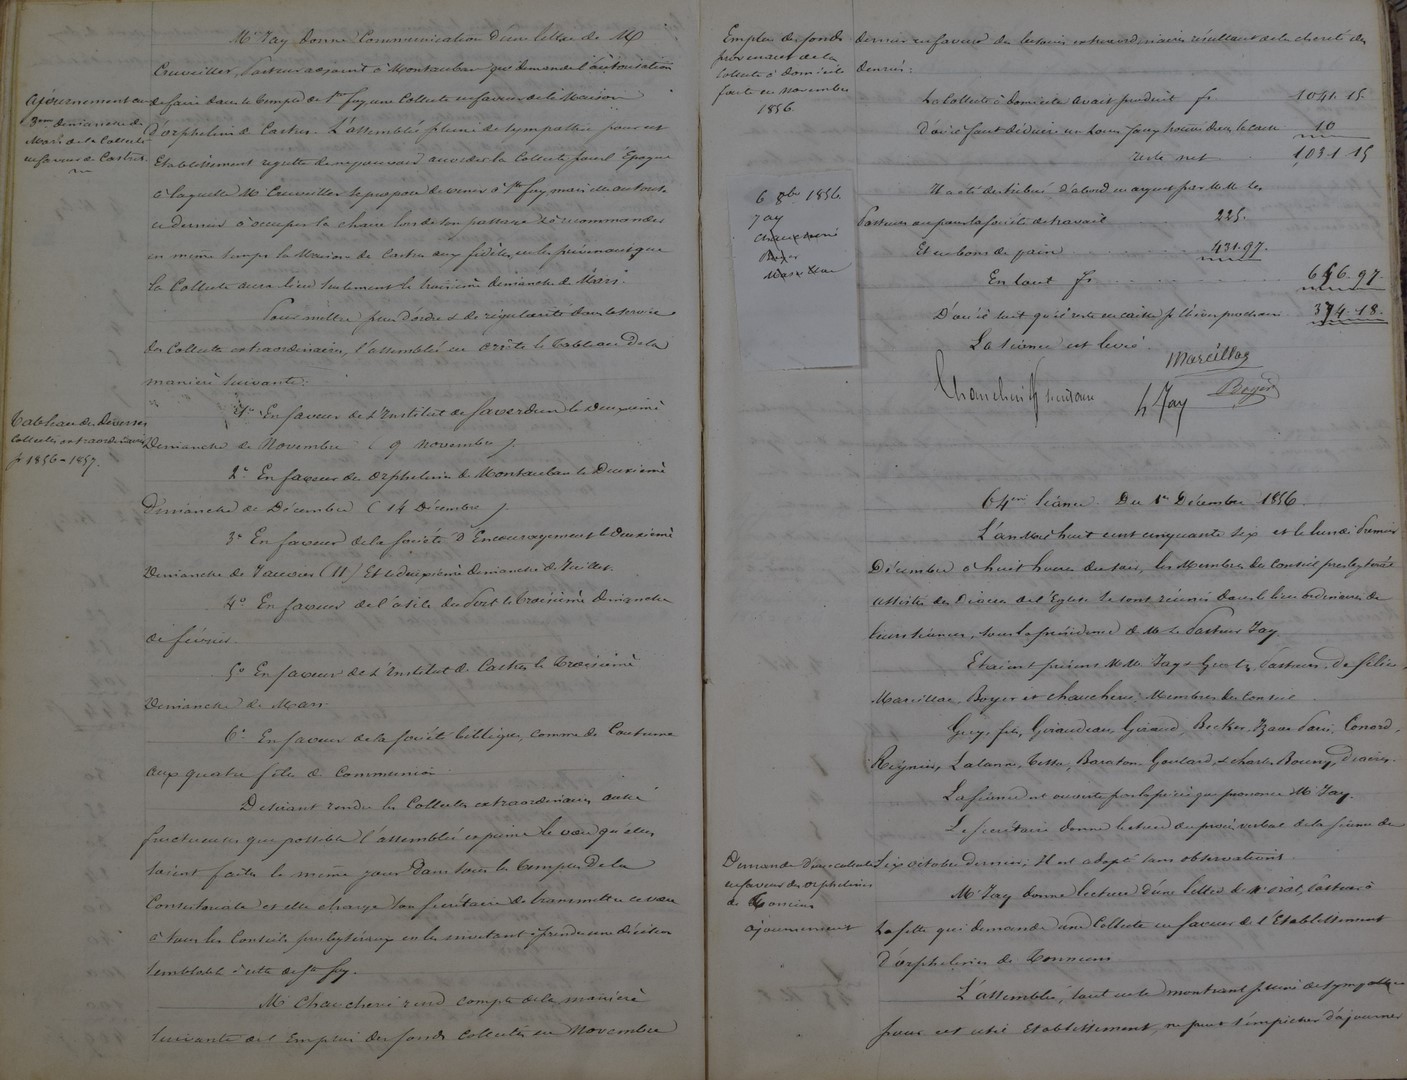 Mr Jay donne Communication d'une lettre de M
Cruveiller, Pasteur adjoint à Montauban qui demande l'autorisation
de faire dans le temple de Ste foy, une Collecte en faveur de la Maison
d'orphelins de Castres. L'assemblée pleine de sympathie pour cet
Etablissement regrette de ne pouvoir accorder la Collecte pour l'Epoque
à laquelle M. Cruveiller se propose de venir à Ste foy mais elle autorise
ce dernier à occuper la chaire lors de son passage & à recommander
en même temps la Maison de Castres aux fidèles, en les prévenant que
la Collecte aura lieu seulement le troisième dimanche de Mars.
Pour mettre plus d'ordre & de régularité dans le service
des Collectes extraordinaires, l'assemblée en arrête le tableau de la
manière suivante:
1o En faveur de l'Institut de Saverdun le deuxième
Dimanche de Novembre (9 novembre).
2o En faveur des orphelins de Montauban le Deuxième
dimanche de Décembre (14 Décembre).
3o En faveur de la Société d'Encouragement le deuxième
Dimanche de Janvier (11) Et le deuxième dimanche de Juillet.
4o En faveur de l'asile du Port le troisième Dimanche
de février.
5o En faveur de l'Institut de Castres le troisième
Dimanche de Mars.
6o En faveur de la Société biblique, comme de Coutume
aux quatre fêtes de Communion
Désirant rendre les Collectes extraordinaires aussi
fructueuses que possible l'assemblée exprime le vœu qu'elles
soient faites le même jour dans tous les temples de la
Consistoriale et elle charge son Secrétaire de transmettre ce vœu
à tous les Conseils presbytéraux en les invitant à prendre une décision
semblable à celle de Ste foy.
Mr Chaucherie rend compte de la manière
suivante de l'Emploi des fonds Collectés en Novembre
Ajournement au
3eme dimanche de
Mars de la Collecte
en faveur de Castres.
Tableau des diverses
Collectes extraordinaires
pr 1856-1857.
Emploi des fonds
provenant de la
Collecte à domicile
faite en Novembre
1856.
dernier en faveur des besoins extraordinaires résultant de la cherté des
denrées:
La Collecte à domicile avait produit fs 1041.15.
D'où il faut déduire un bon faux trouvé dans la caisse 10
reste net 1,031.15
Il a été distribué d'abord en argent par M.M. les
Pasteurs ou par la Société de travail 225.
Et en bons de pain 431.97.
En tout fs 656.97.
D'où il suit qu'il reste en caisse pr l'hiver prochain 374.18.
La séance est levée.
6 8bre 1856
Jay
Chaucherie
Boyer
Marcillac
Marcillac
Boyer
L Jay
64eme Séance. Du 1er Décembre 1856.
L'an Mil huit cent cinquante six et le lundi premier
Décembre à huit heures du soir, les Membres du Conseil presbytéral
assistés des Diacres de l'Eglise se sont réunis dans le lieu ordinaire de
leurs séances, sous la présidence de M. le Pasteur Jay.
Etaient présents M.M. Jay & Pasteurs,
Marcillac, Boyer et Chaucherie, Membres du Conseil
Guy, fils, Giraudeau, Giraud, Becker,
Reynier, Lalanne, Testu, Baraton, Goulard, & Charles Diacres.
La Séance est ouverte par la prière que prononce Mr Jay.
Le Secrétaire donne lecture du procès verbal de la séance du
six octobre dernier. Il est adopté sans observations.
Mr Jay donne lecture d'une lettre de Mr Pasteur à
Lafitte qui demande une Collecte en faveur de l'Etablissement
d'orphelines de Tonneins
L'assemblée, tout en se montrant pleine de sympathie
pour cet utile Etablissement, ne peut s'empêcher d'ajourner
Demande d'une collecte
en faveur des orphelines
de Tonneins
ajournement